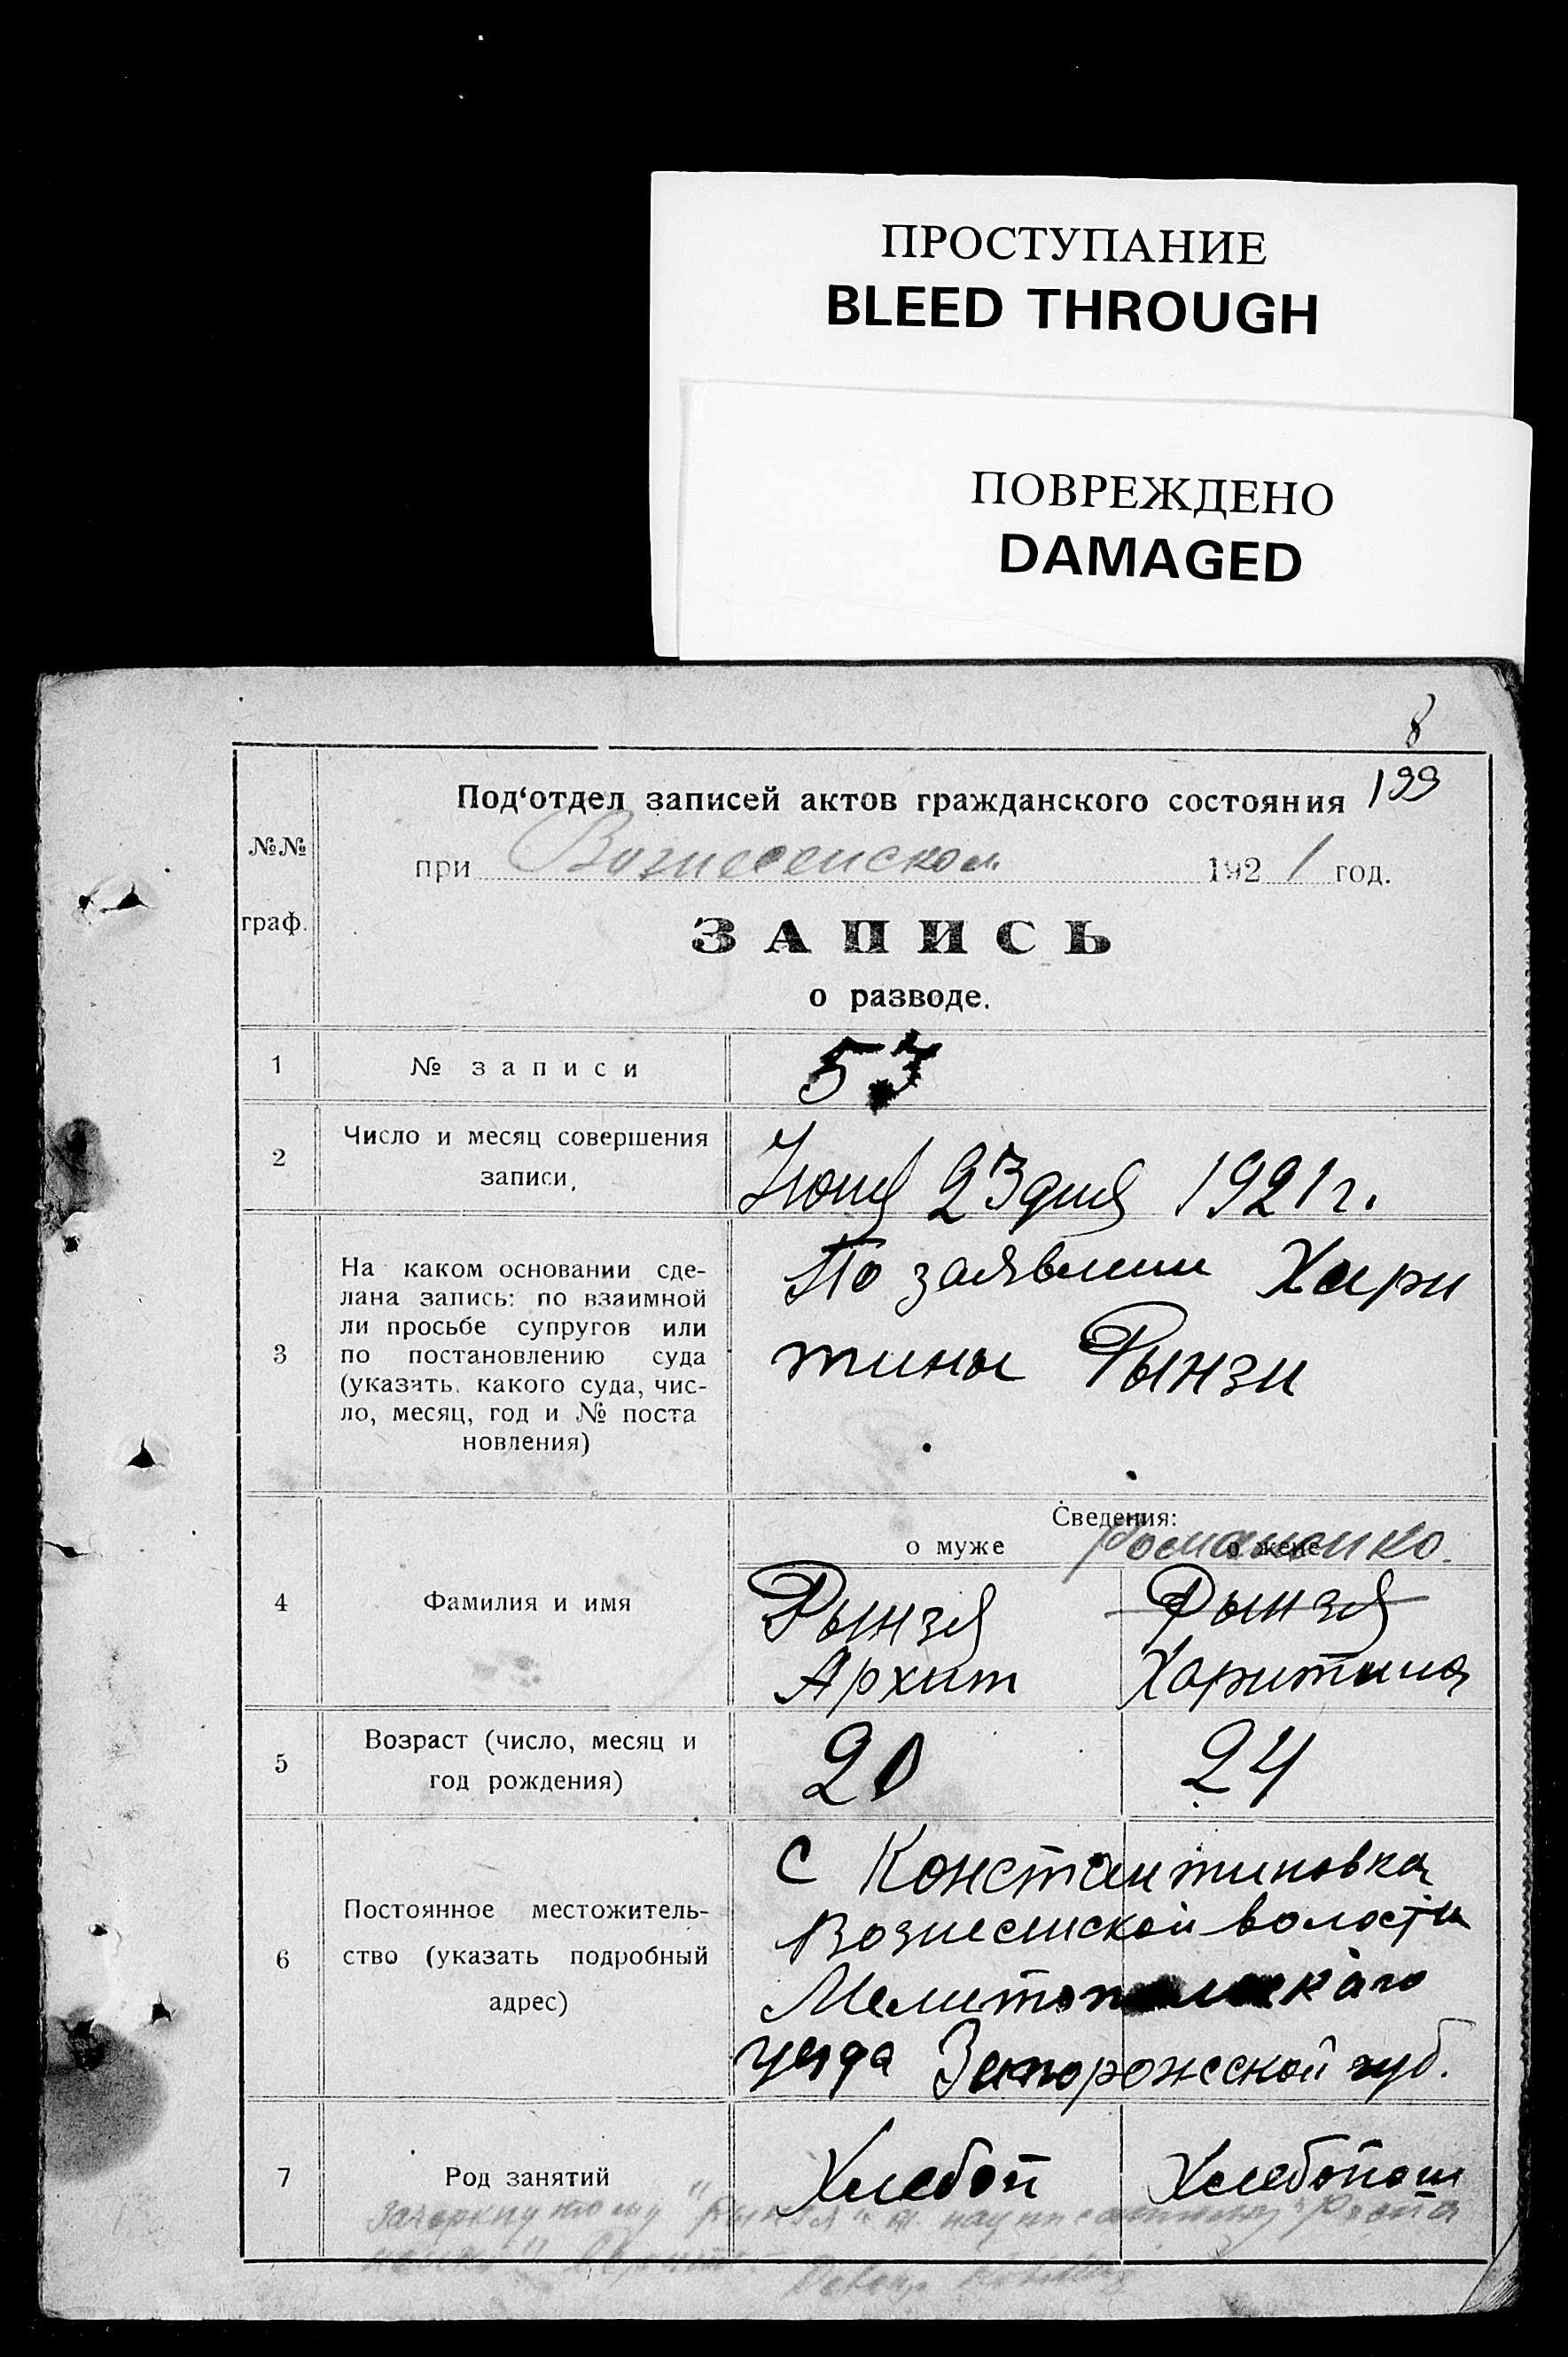 ПРОСТУПАНИЕ
BLEED THROUGH
ПОВРЕЖДЕНО
DAMAGED
8
199
№№
граф.
Под‘отдел записей актов гражданского состояния
при Вознесенском 1921 год.
ЗАПИСЬ
о разводе.
1 № записи 53
2 Число и месяц совершения
записи.
Июня 23 дня 1921 г.
3 На каком основании сде-
лана запись: по взаимной
ли просьбе супругов или
по постановлению суда
(указать, какого суда, чис-
ло, месяц, год и № поста
новления)
По заявлении Хари
тины Рынзи
Сведения:
о муже о жене
Романенко.
4 Фамилия и имя
Рынзя Рынзя
Архип Харитина
5 Возраст (число, месяц и
год рождения)
20 24
6 Постоянное местожитель-
ство (указать подробный
адрес)
С Константиновка
Вознесенской волости
Мелитопольскаго
уезда Запорожеской губ.
7 Род занятий
Хлебоп Хлебопаш
Зачеркнутому "Рынзя" и надписанному "Рома
ненко"